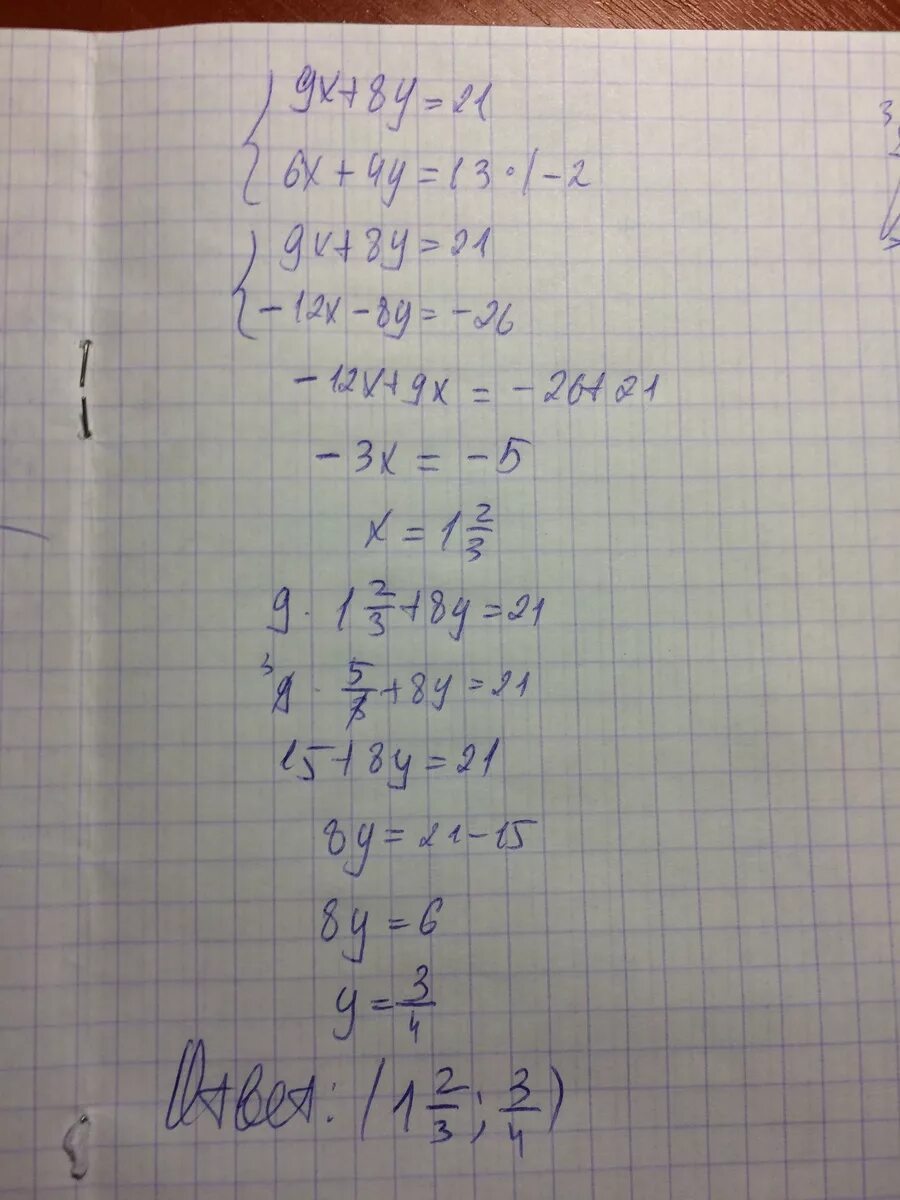 9x+8y=21
6x+4y=13·|-2
9x+8y=21
-12x-8y=-26
-12x+9x=-26+21
-3x=-5
x=1 2/3
9·1 2/3+8y=21
3 9·5/3+8y=21
15+8y=21
8y=21-15
8y=6
y=3/4
Ответ: (1 2/3; 3/4)